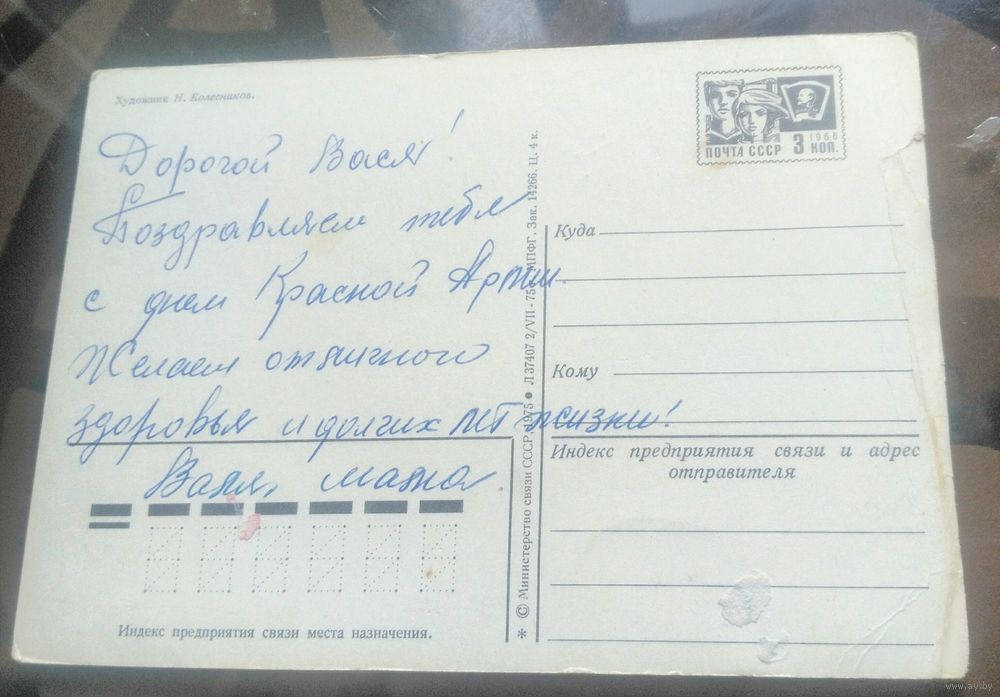 Художник Н. Колесников.
Дорогой Вася!
Поздравляем тебя
с днем Красной Армии.
Желаем отличного
здоровья и долгих лет жизни!
Валя, мама
Индекс предприятия связи места назначения.
* © Министерство связи СССР, 1975 ● Л 37407 2/VII - 75 МПФГ. Зак. 14266. Ц. 4 к.
1966
ПОЧТА СССР 3 КОП.
Куда
Кому
Индекс предприятия связи и адрес
отправителя
www.ay.by